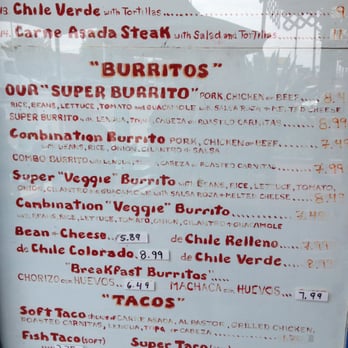 13. Chile Verde with Tortillas
14. Carne Asada Steak with Salad and Tortillas
"BURRITOS"
OUR "SUPER BURRITO" PORK, CHICKEN or BEEF
RICE, BEANS, LETTUCE, TOMATO and GUACAMOLE with SALSA ROJA
SUPER BURRITO with LENGUA, CABEZA or ROASTED CARNITAS
Combination Burrito PORK, CHICKEN or BEEF
with BEANS, RICE, ONION, CILANTRO & SALSA
COMBO BURRITO with LENGUA, CABEZA or ROASTED CARNITAS
Super "Veggie" Burrito with BEANS, RICE, LETTUCE, TOMATO,
ONION, CILANTRO and GUACAMOLE with SALSA ROJA & MELTED CHEESE
Combination "Veggie" Burrito
with BEANS, RICE, LETTUCE, TOMATO, ONION, CILANTRO & GUACAMOLE
Bean and Cheese 5.89 de Chile Relleno 7.99
de Chile Colorado 8.99 de Chile Verde 8.99
"Breakfast Burritos"
CHORIZO con HUEVOS 6.49 MACHACA con HUEVOS 7.99
"TACOS"
Soft Taco choice of CARNE ASADA, AL PASTOR, GRILLED CHICKEN,
ROASTED CARNITAS, LENGUA, TRIPA or CABEZA
Fish Taco (SOFT) Super Taco